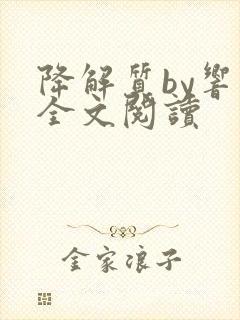 降解質by響
全文閱讀
金家浪子